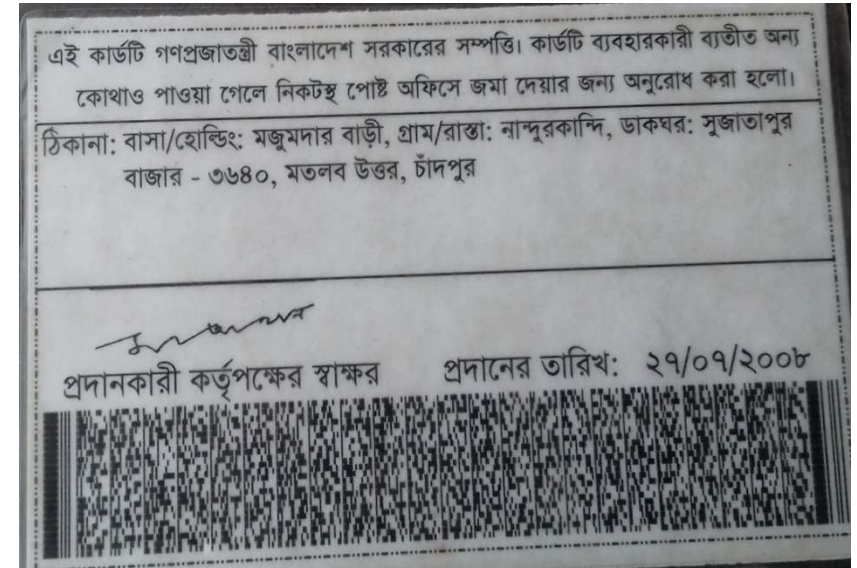 এই কার্ডটি গণপ্রজাতন্ত্রী বাংলাদেশ সরকারের সম্পত্তি। কার্ডটি ব্যবহারকারী ব্যতীত অন্য
কোথাও পাওয়া গেলে নিকটস্থ পোষ্ট অফিসে জমা দেয়ার জন্য অনুরোধ করা হলো।
ঠিকানা: বাসা/হোল্ডিং: মজুমদার বাড়ী, গ্রাম/রাস্তা: নান্দুরকান্দি, ডাকঘর: সুজাতাপুর
বাজার - ৩৬৪০, মতলব উত্তর, চাঁদপুর
প্রদানকারী কর্তৃপক্ষের স্বাক্ষর প্রদানের তারিখ: ২৭/০৭/২০০৮